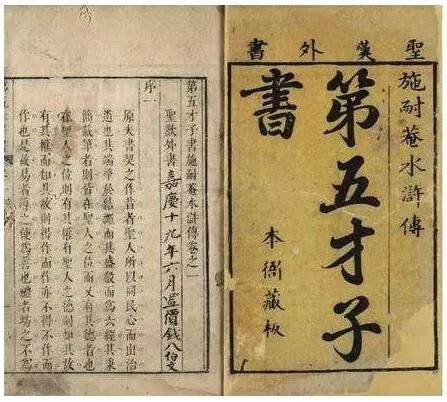 聖歎外書
施耐菴水滸傳
第五才子
書
本衙藏板
第五才子書施耐菴水滸傳卷之一
聖歎外書 嘉慶十九年六月置價錢八伯文
序一
原夫書契之作昔者聖人所以同民心而出治
道也其端肇於結繩而其盛殽而為六經其秉
簡載筆者則皆在聖人之位而又有其德者也
在聖人之位則有其權有聖人之德則知其故
有其權而知其故則得作而作亦不得不作而
作也是故易者導之使為善也禮者坊之不為